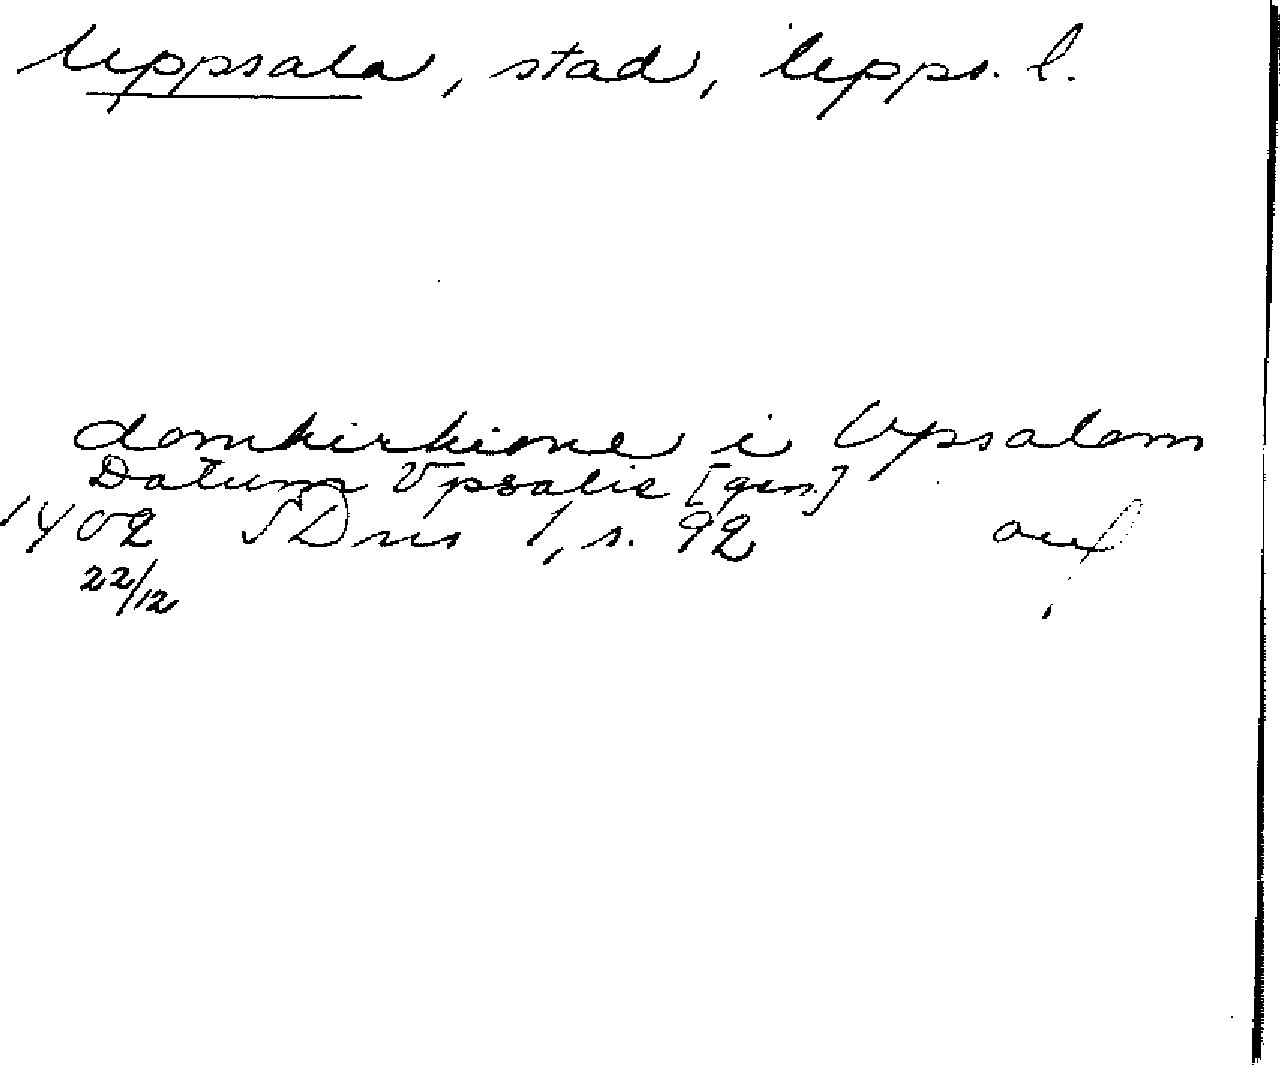 Uppsala, stad, Upps. l.
domkirkione i Vpsalom
Datum Vpsalie [gen.]
1402 SDns 1, s. 92
22/12